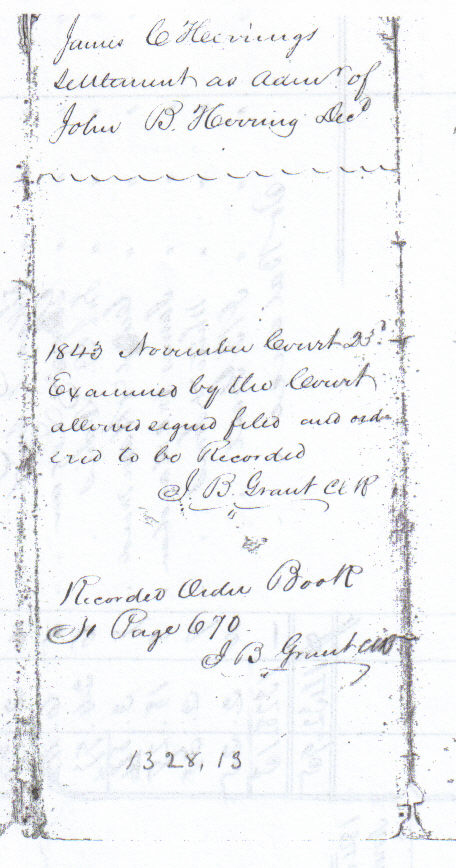 James C Herrings
Settlement as Admr of
John B. Herring Decd
1843 November Court 23d
Examined by the Court
allowed signed filed and ord-
ered to be Recorded
J. B Grant Clk
Recorded Order Book
Page 670
J B Grant Clk
1328,13